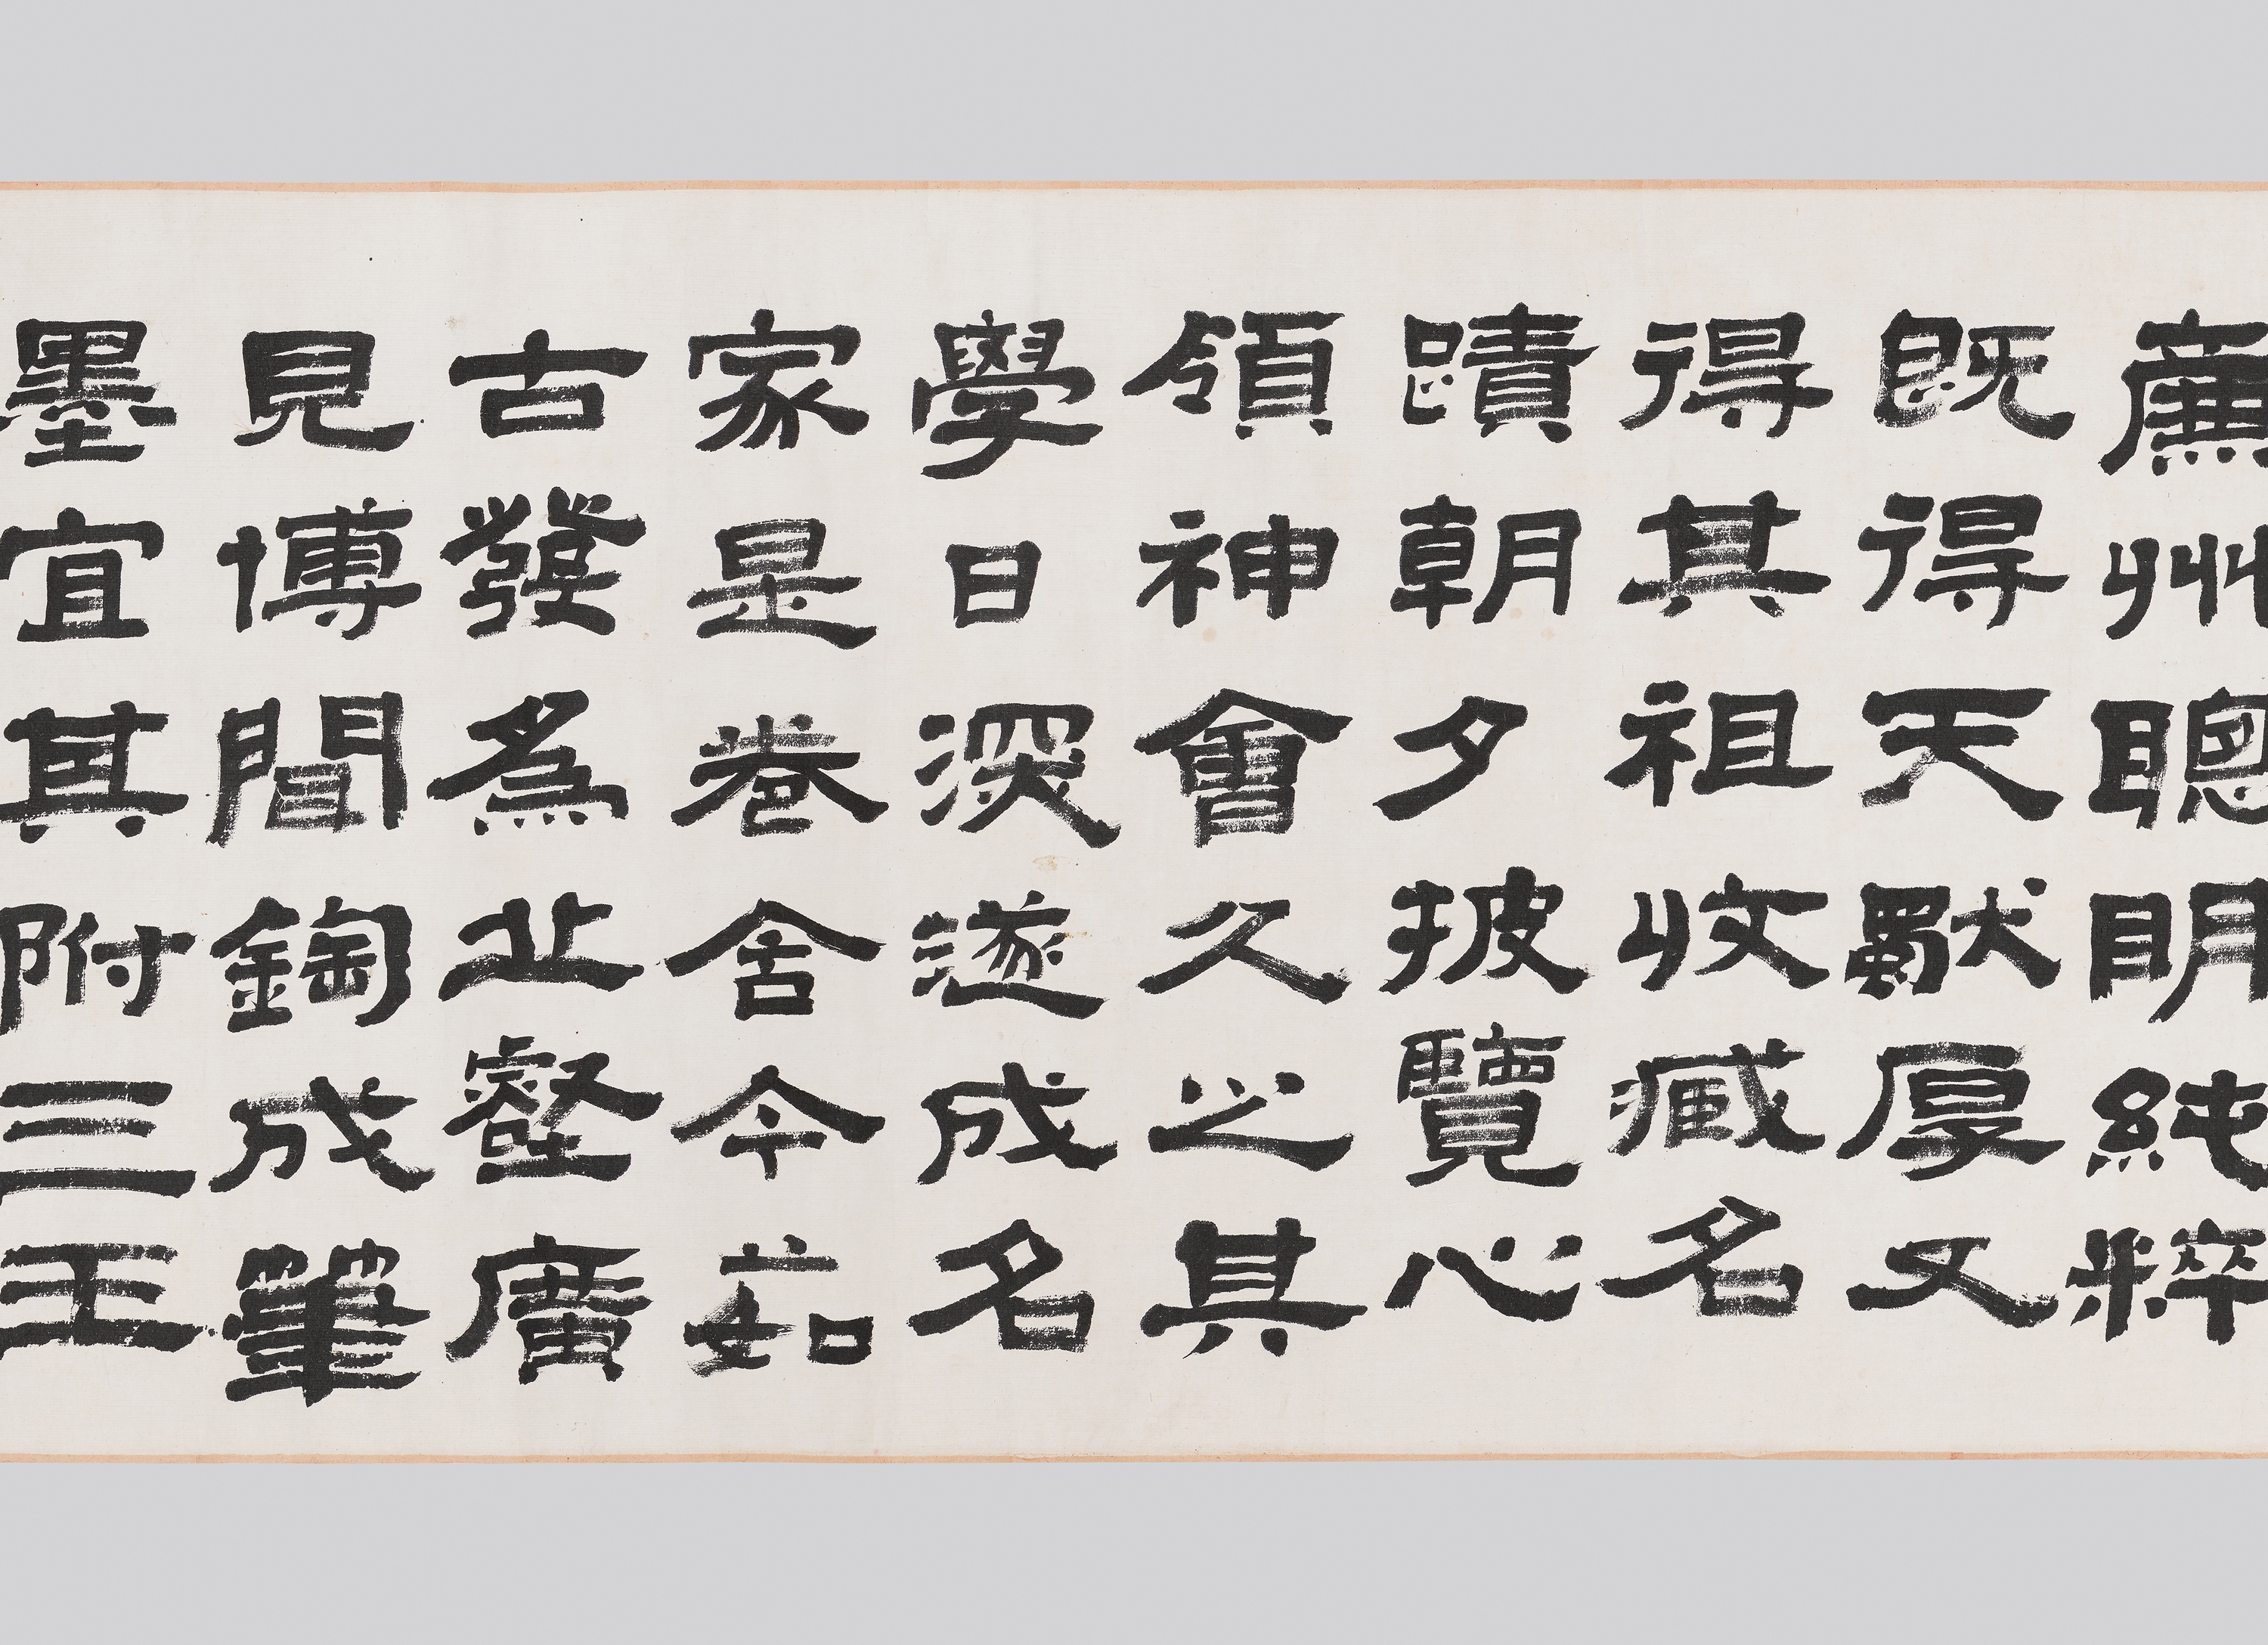 廉州聰明純粹
既得天獨厚又
得其祖收藏名
蹟朝夕披覽心
領神會久之其
學日深遂成名
家是卷含今茹
古發為丘壑廣
見博聞鋾成筆
墨宜其附三王